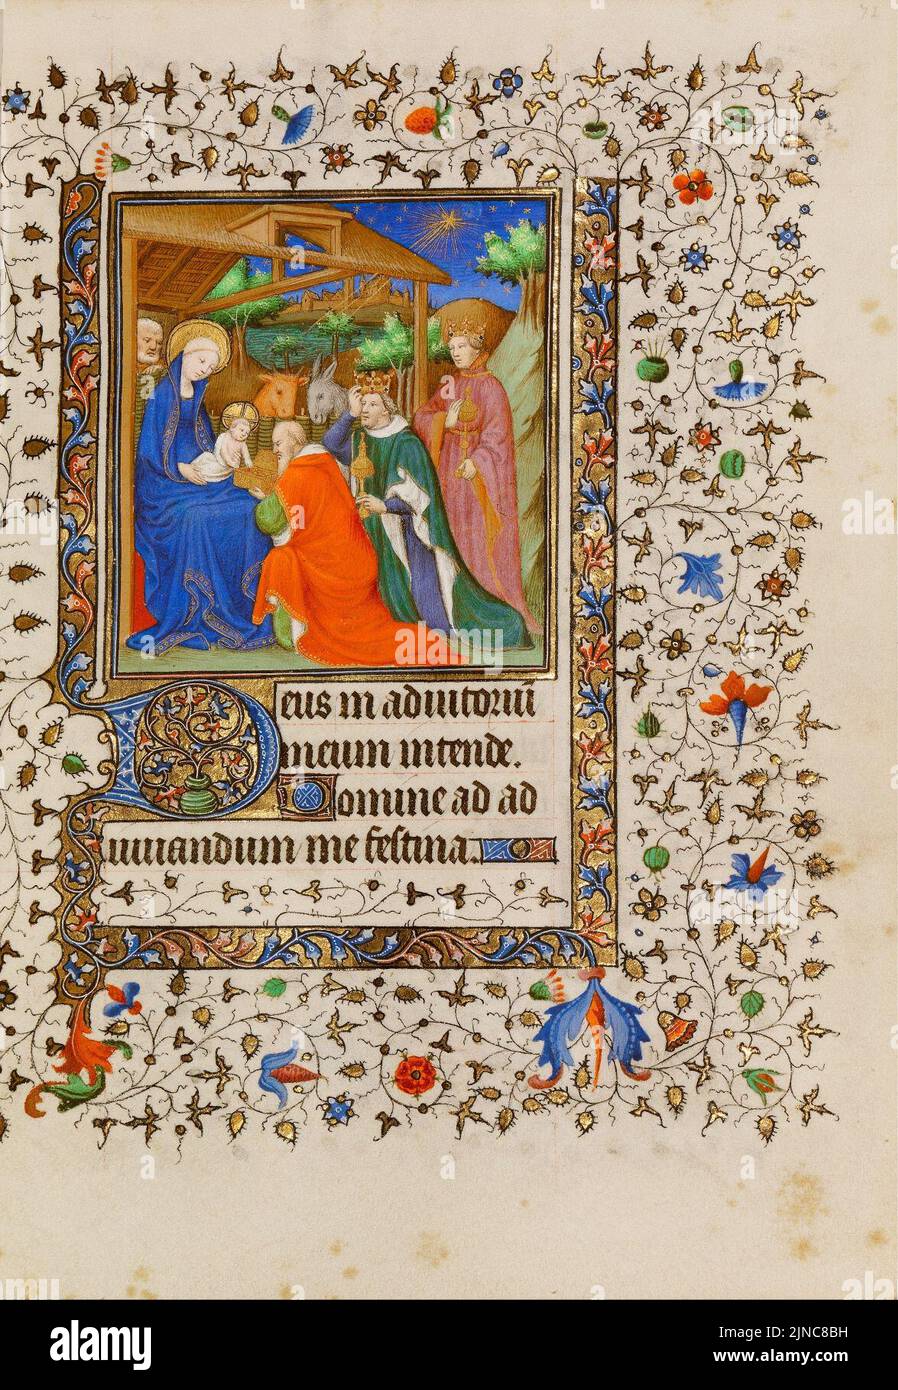 Deus in adiutoriū
meum intende.
Domine ad ad
iuuandum me festina.
alamy
Image ID: 2JNC8BH
www.alamy.com